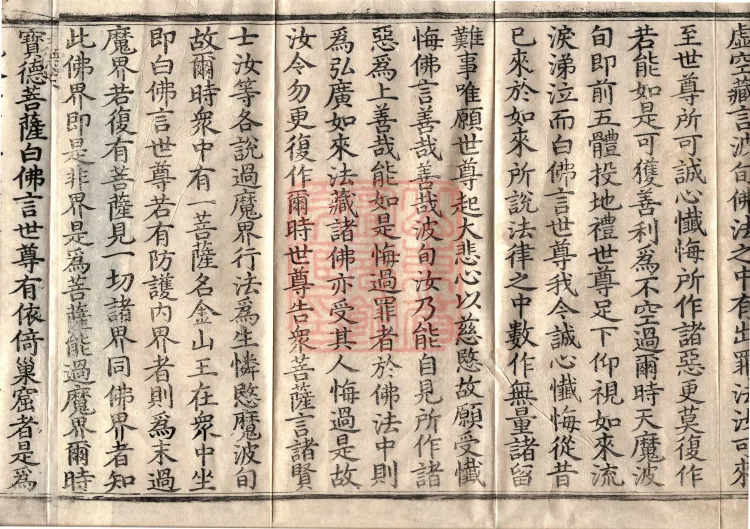 虛空藏言波旬佛法之中有出罪法汝可來
至世尊所可誠心懺悔所作諸惡更莫復作
若能如是可獲善利為不空過爾時天魔波
旬即前五體投地禮世尊足下仰視如來流
淚涕泣而白佛言世尊我今誠心懺悔從昔
已來於如來所說法律之中數作無量諸留
難事唯願世尊起大悲心以慈愍故願受懺
悔佛言善哉善哉波旬汝乃能自見所作諸
惡為上善哉能如是悔過罪者於佛法中則
為弘廣如來法藏諸佛亦受其人悔過是故
汝令勿更復作爾時世尊告眾菩薩言諸賢
士汝等各說過魔界行法為生憐愍魔波旬
故爾時眾中有一菩薩名金山王在眾中坐
即白佛言世尊若有防護內界者則為未過
魔界若復有菩薩見一切諸界同佛界者知
此佛界即是非界是為菩薩能過魔界爾時
寶德菩薩白佛言世尊有依倚巢窟者是為